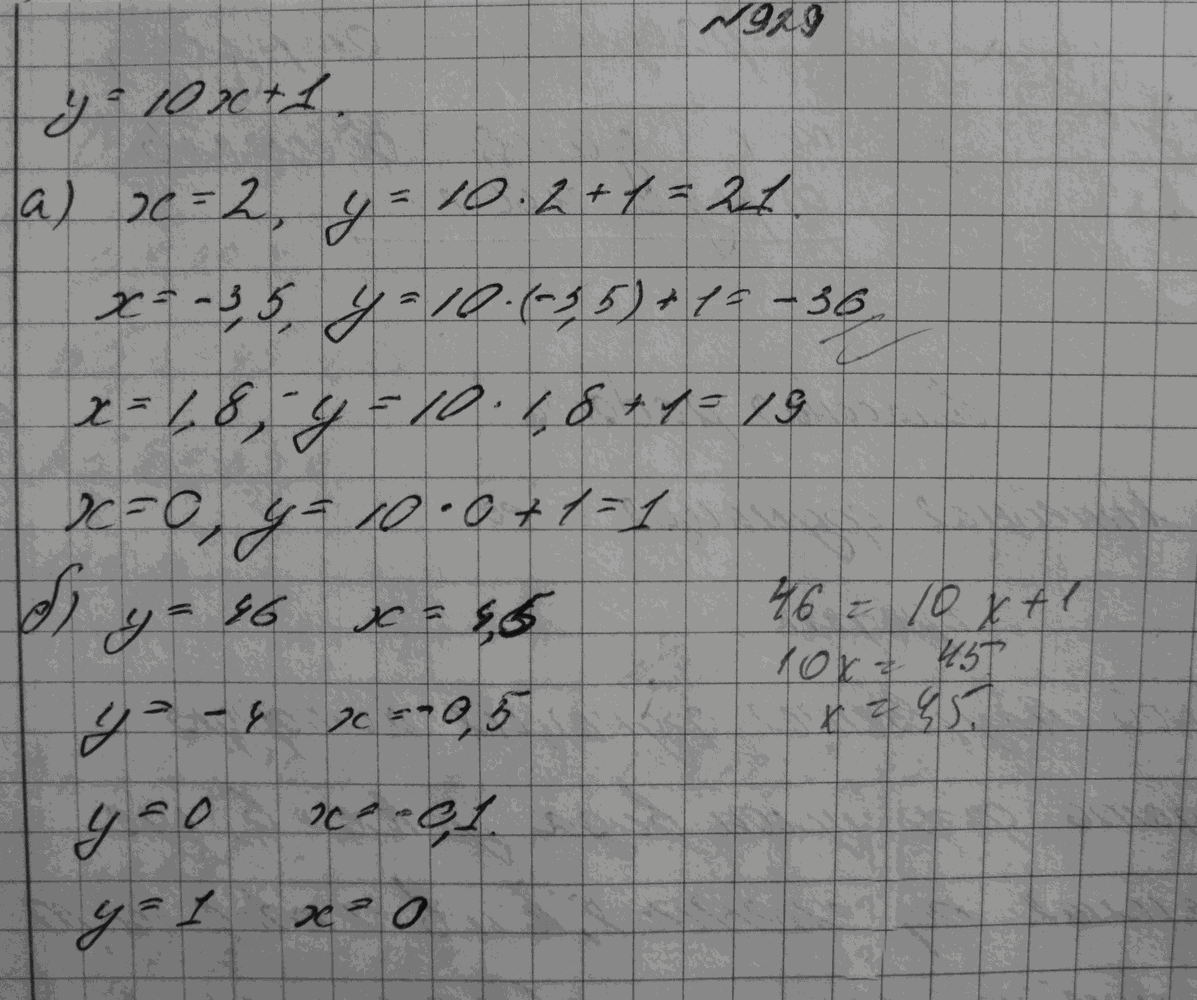 №929
y = 10x+1.
а) x = 2, y = 10·2+1 = 21.
x = -3,5, y = 10·(-3,5)+1 = -36
x = 1,8, y = 10·1,8+1 = 19
x=0, y = 10·0+1=1
б) y = 46 x = 4,5 46 = 10x+1
10x = 45
y = -4 x = -0,5 x = 4,5.
y = 0 x = -0,1.
y = 1 x = 0